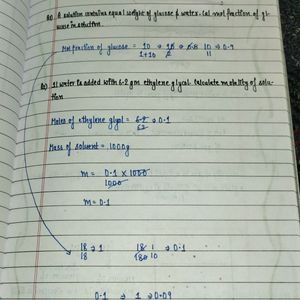 Q) A solution contains equal weight of glucose & water. Cal mol fraction of gl-
ucose in solution.
Mol fraction of glucose = 10
1+10
10
11
⇒ 0.9
Q) 1l water is added with 6.2 gm ethylene glycol. Calculate molality of solu-
tion
Moles of ethylene glycol = 6.2 ⇒ 0.1
62
Mass of solvent = 1000g
m = 0.1 × 1000
1000
m = 0.1
18 ⇒ 1
18
18 1 ⇒ 0.1
180 10
0.1 ⇒ 1 ⇒ 0.09